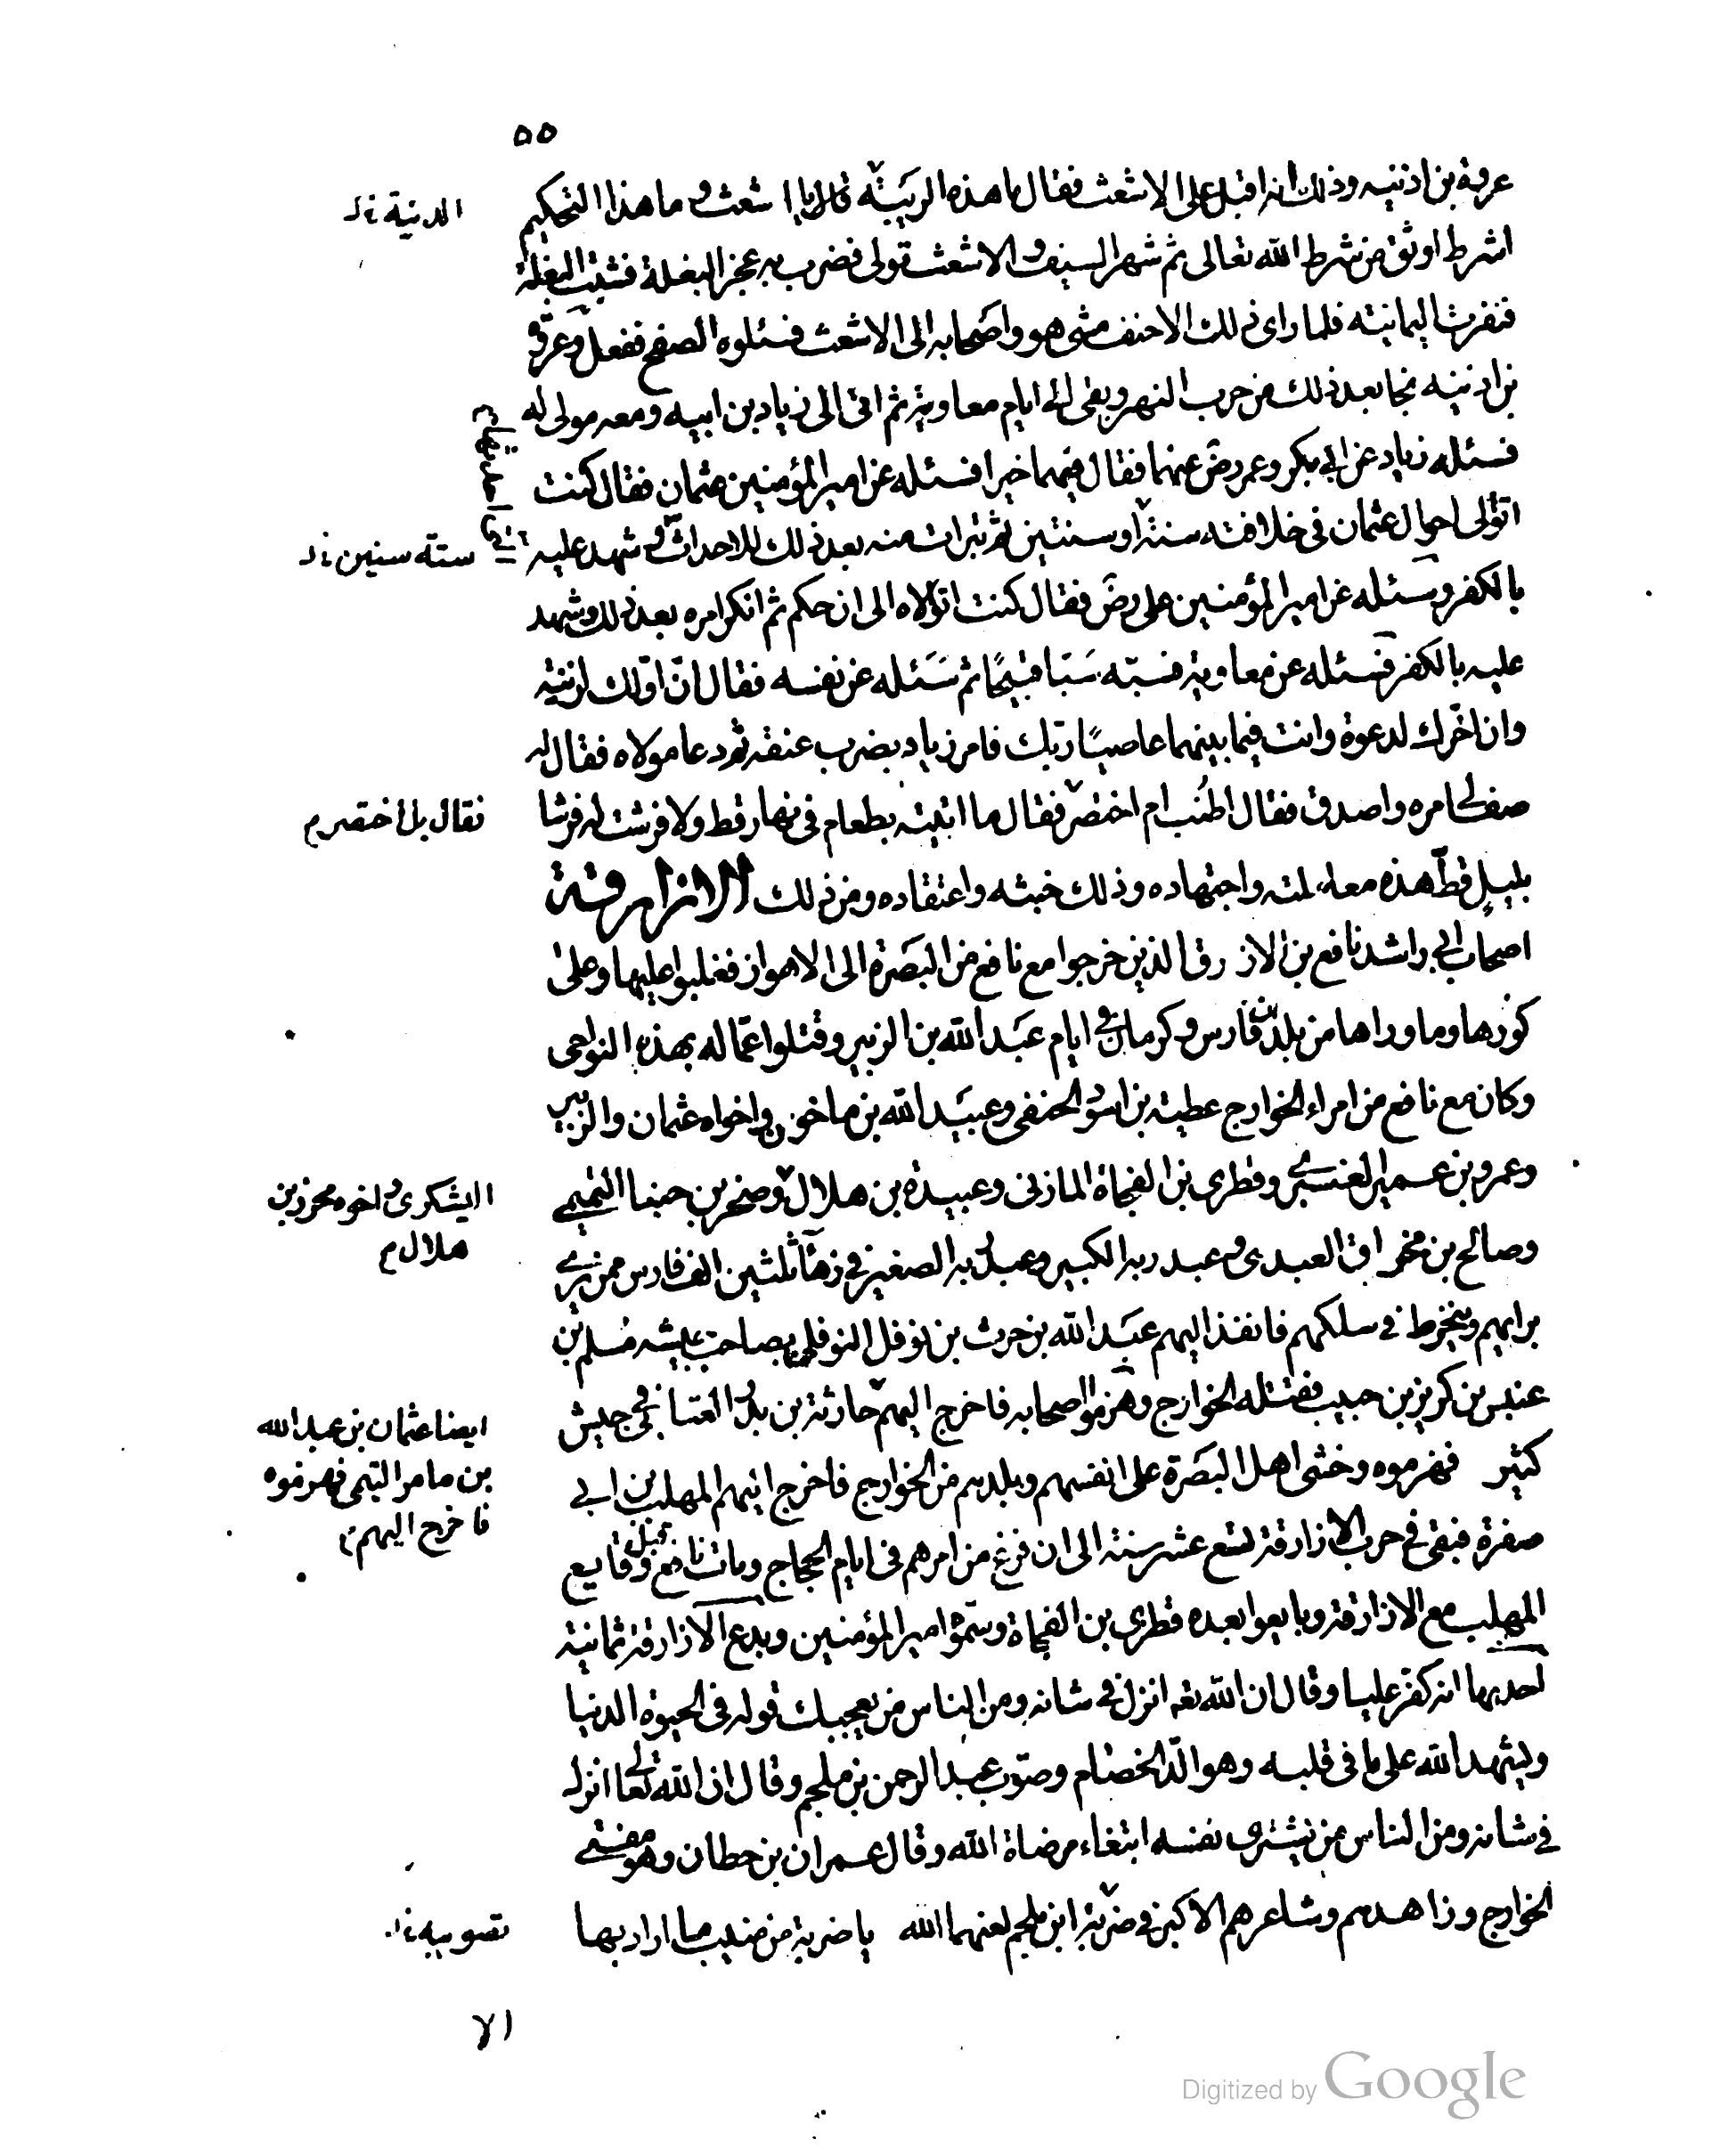 ٥٥
عروة بن اذنيه وذلك انه اقبل على الاشعث فقال ما هذه الريبة قال يا اشعث و ما هذا التحكيم
الدنية نـ
اشرط اوثق من شرط الله تعالى ثم شهر السيف والاشعث تولى فضرب به عجز البغلة فشبت البغلة
فنفرت اليمانية فلما راى ذلك الاحنف مشى هو واصحابه الى الاشعث فسئلوه الصفح ففعل وعروة
بن اذنيه نجا بعد ذلك من حرب النهر وبقى الى ايام معاوية ثم اتى الى زياد بن ابيه ومعه مولى له
فسئله زياد عن ابي بكر وعمر رض عنهما فقال فيهما خيرا فسئله عن امير المؤمنين عثمان فقال كنت
اتولى احوال عثمان فى خلافته سنة او سنتين ثم تبرات منه بعد ذلك للاحداث و شهد عليه
ستة سنين نـ
بالكفر وسئله عن امير المؤمنين على رض فقال كنت اتولاه الى ان حكم ثم انكر امره بعد ذلك وشهد
عليه بالكفر فسئله عن معاوية فسبّه سَبّا قبيحًا ثم سَئله عن نفسه فقال انّ اوّلك لزنية
وان اخّرك لدعوة وانت فيما بينهما عاصيًا ربك فامر زياد بضرب عنقه ثم دعا مولاه فقال له
صف لى امره واصدق فقال اطنب ام اختصر فقال ما اتيته بطعام فى نهار قط ولا فرشت له فرشا
فقال بل اختصر م
بليلٍ قطّ هذه معاملته واجتهاده وذلك خبثه واعتقاده ومن ذلك الازارقة
اصحاب ابي راشد نافع بن الازرق الذين خرجوا مع نافع من البَصَرة الى الاهواز فغلبوا عليها وعلى
كورها وما وراها من بلدان فارس و كرمان فى ايام عبَد الله بن الزبير وقتلوا عمّاله بهذه النواحى
وكان مع نافع من امراء الخوارج عطية بن اسود الحنفى وعبيَد الله بن ماخون و اخواه عثمان والزبير
وعمرو بن عمير العنبرى وقطرى بن الفجاة المازنى وعبيدة بن هلال وصخر بن حبنا التميمى
اليشكرى و اخوه محرز بن
هلال م
وصالح بن مخراق العبدى و عبد ربه الكبير وعبد ربه الصغير فى زهآ ثلثين الف فارس ممن يرى
برايهم وينخرط فى سلكهم فانفذ اليهم عبَد الله بن حرث بن نوفل النوفلى بصاحب جيشه مسلم بن
عنبس بن كريز بن حبيب فقتله الخوارج وهزموا اصحابه فاخرج اليهم حارثة بن بدر العتابى فى جيش
ايضا عثمان بن عبد الله
بن مامر التيمى فهزموه
فاخرج اليهم م
كثير فهزموه وخشى اهل البَصَرة على انفسهم وبلدهم من الخوارج فاخرج اليهم المهلب بن ابي
صفرة فبقى فى حرب الازارقة تسع عشر سنة الى ان فرغ من امرهم فى ايام الحجاج ومات نافع قبل وقايع
المهلب مع الازارقة وبايعوا بعده قطرى بن الفجاة وسمّوه امير المؤمنين وبدع الازارقة ثمانية
احديها انه كفر عليا وقال ان الله تع انزل فى شانه ومن الناس من يعجبك قوله فى الحيوة الدنيا
ويشهد الله على ما فى قلبه وهو الدّ الخصام وصوّب عبد الرحمن بن ملجم وقال ان الله تعالى انزل
فى شانه ومن الناس من يشترى نفسه ابتغاء مرضاة الله وقال عمران بن حطان وهو مفتى
الخوارج وزاهدهم وشاعرهم الاكبر فى ضربة ابن ملجم لعنهما الله يا ضربة من منيب ما اراد بها
تصويبه نـ
٧١
Digitized by Google